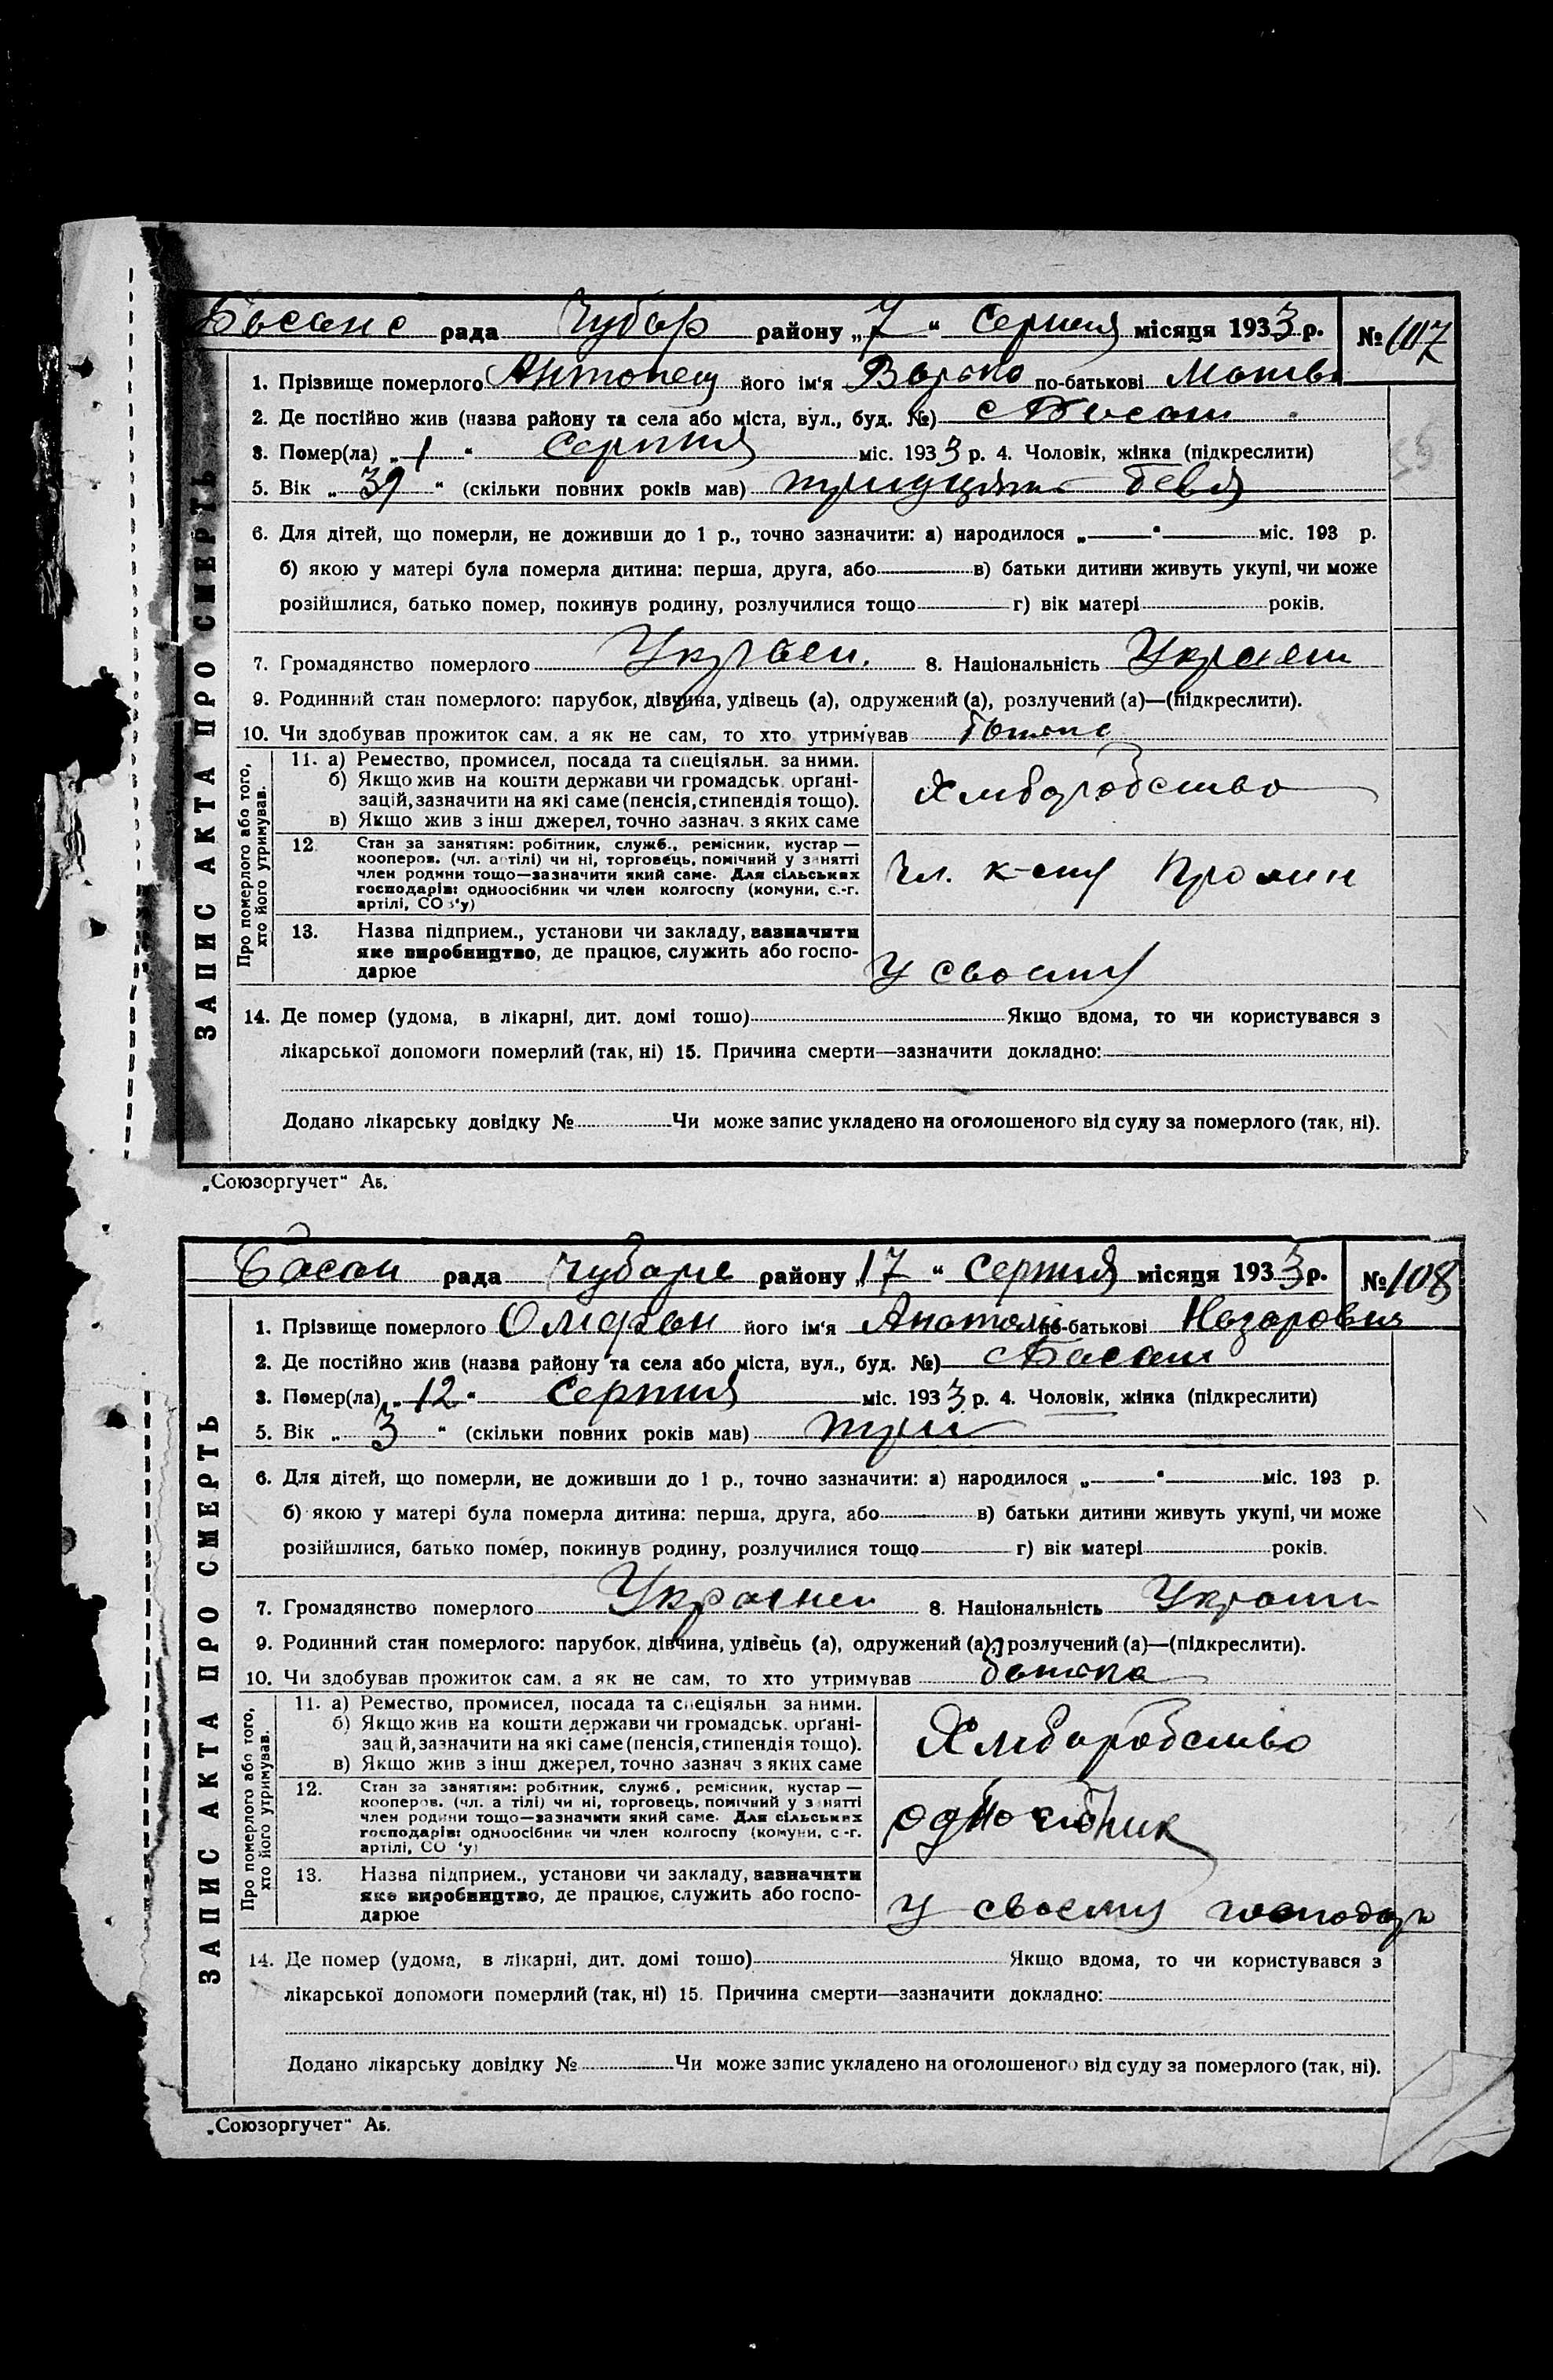 Басанс рада Чубар району „7“ Серпня місяця 1933 р. № 107
ЗАПИС АКТА ПРО СМЕРТЬ
1. Прізвище померлого Антонец його ім'я по-батькові Матві
2. Де постійно жив (назва району та села або міста, вул., буд. №) с Басань
3. Помер(ла) „1“ Серпня міс. 1933 р. 4. Чоловік, жінка (підкреслити)
5. Вік „39“ (скільки повних років мав) тридцять
6. Для дітей, що померли, не доживши до 1 р., точно зазначити: а) народилося „ “ міс. 193 р.
б) якою у матері була померла дитина: перша, друга, або в) батьки дитини живуть укупі, чи може
розійшлися, батько помер, покинув родину, розлучилися тощо г) вік матері років.
7. Громадянство померлого Украен. 8. Національність Украен
9. Родинний стан померлого: парубок, дівчина, удівець (а), одружений (а), розлучений (а)—(підкреслити).
10. Чи здобував прожиток сам, а як не сам, то хто утримував
Про померлого або того, хто його утримував.
11. а) Ремество, промисел, посада та спеціяльн. за ними.
б) Якщо жив на кошти держави чи громадськ. орґані-
зацій, зазначити на які саме (пенсія, стипендія тощо).
в) Якщо жив з інш джерел, точно зазнач. з яких саме
Хліборобство
12. Стан за заняттям: робітник, служб., ремісник, кустар —
кооперов. (чл. артілі) чи ні, торговець, помічний у занятті
член родини тощо—зазначити який саме. Для сільських
господарів: одноосібник чи член колгоспу (комуни, с.-г.
артілі, СОЗ'у)
Чл. к-спу Промин
13. Назва підприєм., установи чи закладу, зазначити
яке виробництво, де працює, служить або госпо-
дарює
У своему
14. Де помер (удома, в лікарні, дит. домі тошо) Якщо вдома, то чи користувався з
лікарської допомоги померлий (так, ні) 15. Причина смерти—зазначити докладно:
Додано лікарську довідку № Чи може запис укладено на оголошеного від суду за померлого (так, ні).
„Союзоргучет“ Аб.
Басан рада Чубаре району „17“ Серпня місяця 1933 р. № 108
ЗАПИС АКТА ПРО СМЕРТЬ
1. Прізвище померлого його ім'я Анатолій по-батькові Назарович
2. Де постійно жив (назва району та села або міста, вул., буд. №) с Басань
3. Помер(ла) „12“ Серпня міс. 1933 р. 4. Чоловік, жінка (підкреслити)
5. Вік „3“ (скільки повних років мав) три
6. Для дітей, що померли, не доживши до 1 р., точно зазначити: а) народилося „ “ міс. 193 р.
б) якою у матері була померла дитина: перша, друга, або в) батьки дитини живуть укупі, чи може
розійшлися, батько помер, покинув родину, розлучилися тощо г) вік матері років.
7. Громадянство померлого Украинец 8. Національність Украин
9. Родинний стан померлого: парубок, дівчина, удівець (а), одружений (а), розлучений (а)—(підкреслити).
10. Чи здобував прожиток сам, а як не сам, то хто утримував батька
Про померлого або того, хто його утримував.
11. а) Ремество, промисел, посада та спеціяльн за ними.
б) Якщо жив на кошти держави чи громадськ. орґані-
зацій, зазначити на які саме (пенсія, стипендія тощо).
в) Якщо жив з інш джерел, точно зазнач з яких саме
Хліборобство
12. Стан за заняттям: робітник, служб., ремісник, кустар —
кооперов. (чл. артілі) чи ні, торговець, помічний у занятті
член родини тощо—зазначити який саме. Для сільських
господарів: одноосібник чи член колгоспу (комуни, с.-г.
артілі, СОЗ'у)
одноосібник
13. Назва підприєм., установи чи закладу, зазначити
яке виробництво, де працює, служить або госпо-
дарює
У своему господар
14. Де помер (удома, в лікарні, дит. домі тошо) Якщо вдома, то чи користувався з
лікарської допомоги померлий (так, ні) 15. Причина смерти—зазначити докладно:
Додано лікарську довідку № Чи може запис укладено на оголошеного від суду за померлого (так, ні).
„Союзоргучет“ Аб.